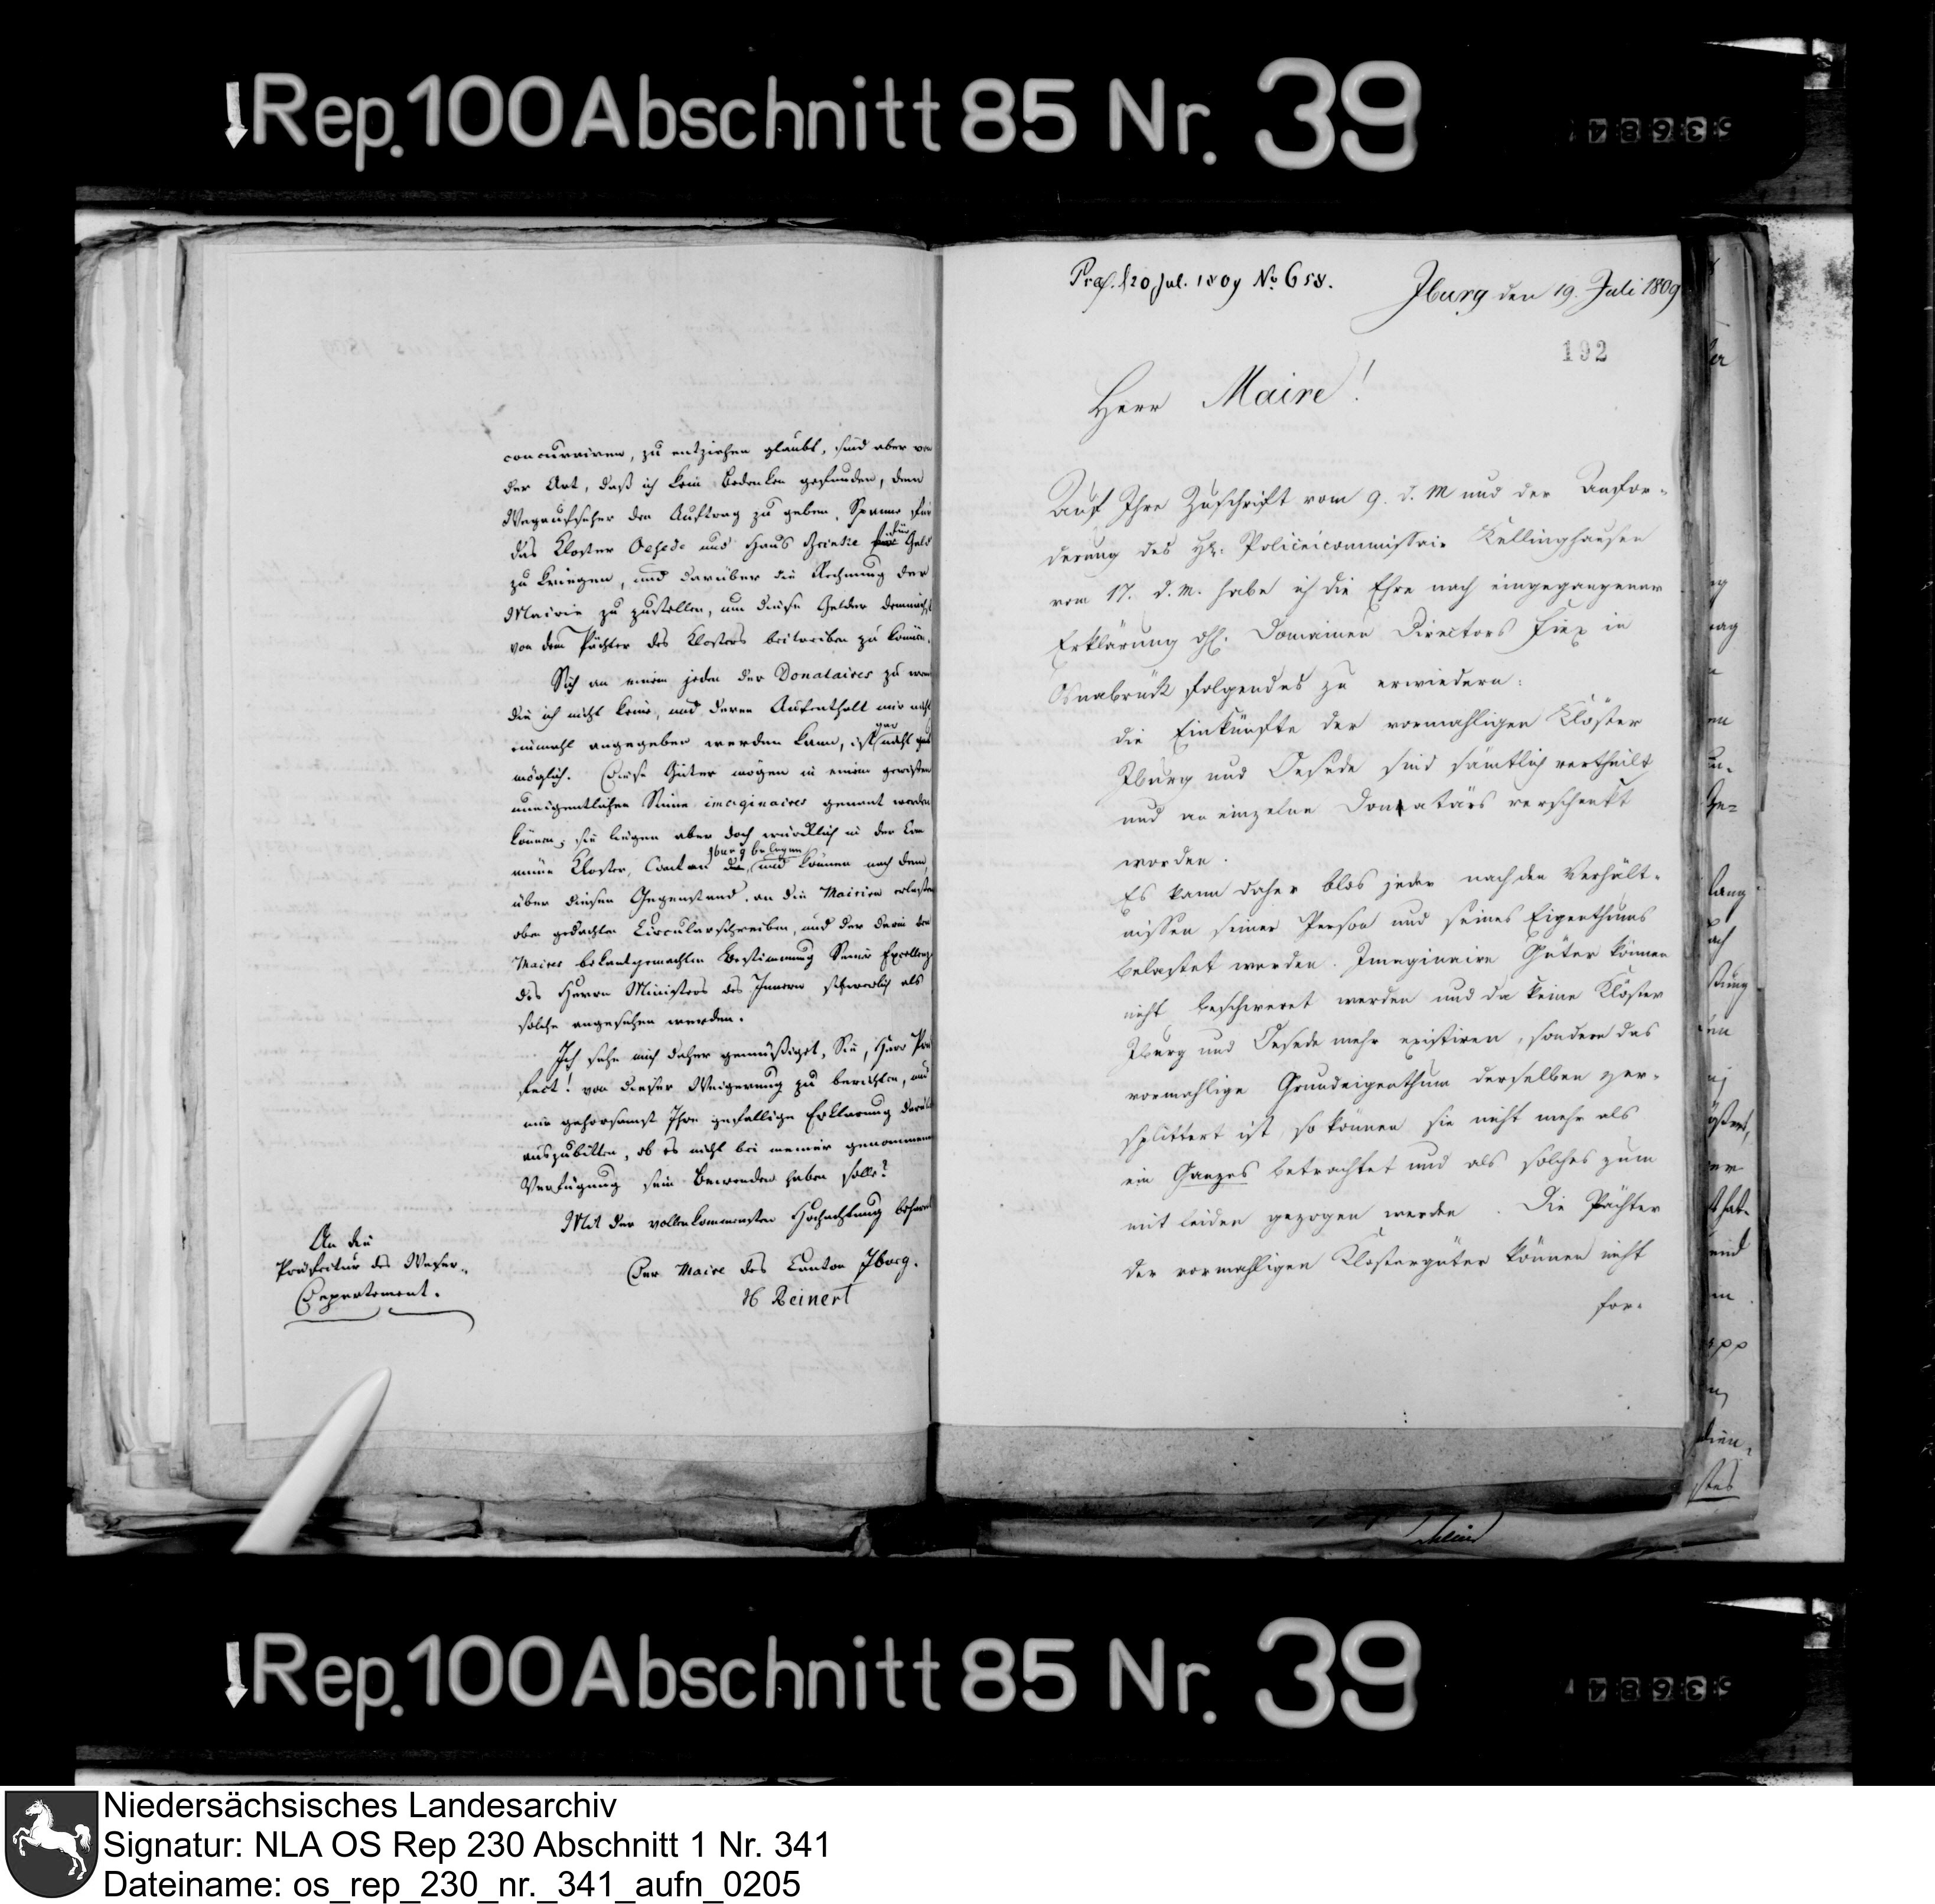 Rep. 100 Abschnitt 85 Nr. 39
concurriren, zu entziehen glaubt, sind aber von
der Art, daß ich kein Bedenken gefunden, dem
Wegaufseher den Auftrag zu geben, Spanne für
das Kloster Oesede und Haus Brinke für Geld
zu kriegen, und darüber die Rechnung der
Mairie zu zustellen, um diese Gelder demnächst
von dem Pächter des Klosters beitreiben zu können.
Sich an einem jeden der Donataires zu wenden
die ich nicht kenne, und deren Aufenthalt mir nicht
einmahl angegeben werden kann, ist gar nicht
möglich. Diese Güter mögen in einem gewissen
uneigentlichen Sinne imaginaires genant werden
können, sie liegen aber doch würcklich in der Com
mune Kloster, Canton Iburg belegen und können nach dem,
über diesen Gegenstand, an die Mairien erlassen
oben gedachten Circularschreiben, und der darin den
Maires bekantgemachten Bestimmung Seiner Excellenz
des Herrn Ministers des Innern schwerlich als
solche angesehen werden.
Ich sehe mich daher gemüßiget, Sie, Herr Prä
fect! von dieser Weigerung zu berichten, und
mir gehorsamst Ihre gefällige Erklärung darüber
auszubitten, ob es nicht bei meiner genommenen
Verfügung sein Bewenden haben solle?
Mit der vollenkommensten Hochachtung beharre
Der Maire des Canton Iburg.
Reinert
An die
Präfectur des Weser-
Departement.
Præs. d 20 Jul. 1809 No 658.
Iburg den 19. Juli 1809
192
Herr Maire!
Auf Ihre Zuschrift vom 9. d. M und der Anfor-
derung des H. Policeicommissair Kellinghausen
vom 17. d. M. habe ich die Ehre nach eingegangener
Erklärung H. Domainen Directors in
Osnabrück folgendes zu erwiedern:
die Einkünfte der vormahligen Klöster
Iburg und Oesede sind sämtlich vertheilt
und an einzelne Donatärs verschenkt
worden.
Es kann daher blos jeder nach den Verhält-
nissen seiner Person und seines Eigenthums
belastet werden. Imaginaire Güter können
nicht beschweret werden und da keine Klöster
Iburg und Oesede mehr existiren, sondern das
vormahlige Grundeigenthum derselben zer-
splittert ist, so können sie nicht mehr als
ein Ganzes betrachtet und als solches zum
mit leiden gezogen werden. Die Pächter
der vormahligen Klostergüter können nicht
for-
Rep. 100 Abschnitt 85 Nr. 39
Niedersächsisches Landesarchiv
Signatur: NLA OS Rep 230 Abschnitt 1 Nr. 341
Dateiname: os_rep_230_nr._341_aufn_0205